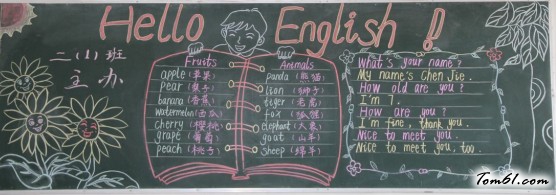 Hello English !
二(1)班
主办
Fruits
apple (苹果)
pear (梨子)
banana (香蕉)
watermelon (西瓜)
cherry (樱桃)
grape (葡萄)
peach (桃子)
Animals
panda (熊猫)
lion (狮子)
tiger (老虎)
fox (狐狸)
elephant (大象)
goat (山羊)
sheep (绵羊)
What's your name?
My name's Chen Jie.
How old are you?
I'm 7.
How are you?
I'm fine, thank you.
Nice to meet you.
Nice to meet you, too.
Tom61.com